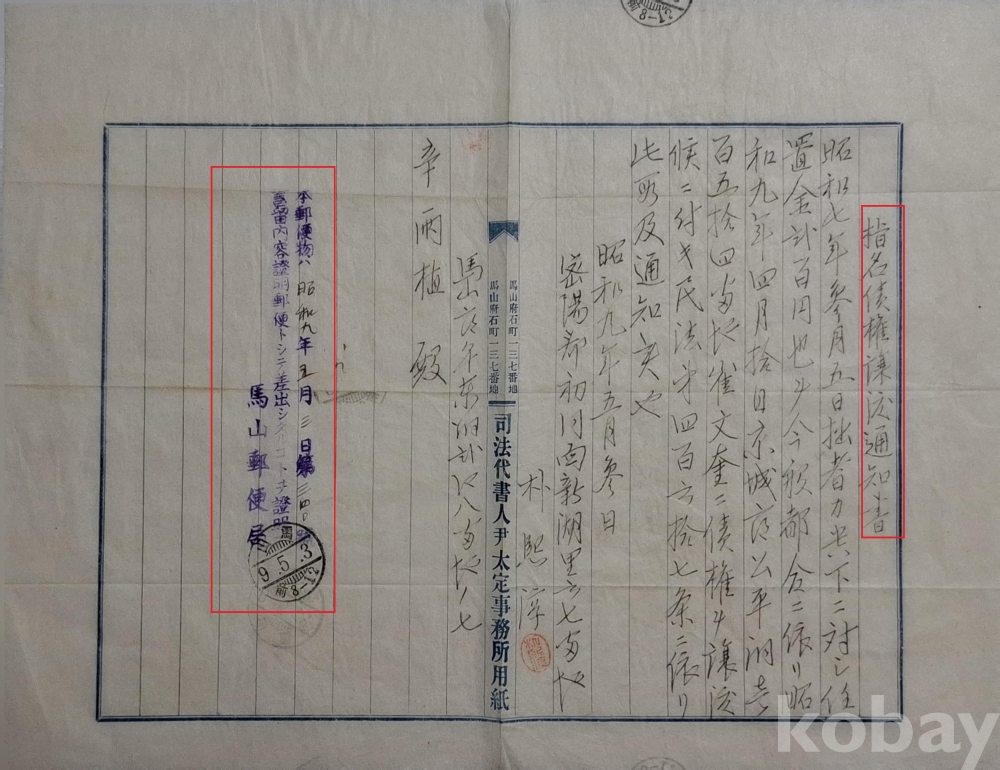 指名債権譲渡通知書
昭和七年参月五日拙者カ貴下ニ対シ任
置金弐百円也ヲ今般都合ニ依リ昭
和九年四月拾日京城府公平洞壱
百五拾四番地崔文奎ニ債権ヲ譲渡
候ニ付キ民法第四百六拾七条ニ依リ
此段及通知候也
昭和九年五月参日
密陽郡初同面新湖里六七番地
朴熙淳
馬山府石町一三七番地
馬山府石町一三七番地
司法代書人尹太定事務所用紙
馬山府午東洞弐区八番地ノ七
辛丙植 殿
本郵便物ハ昭和九年五月三日第三四〇號
書留内容證明郵便トシテ差出シタルコトヲ證明
馬山郵便局
馬山
9.5.3
前8-12
kobay